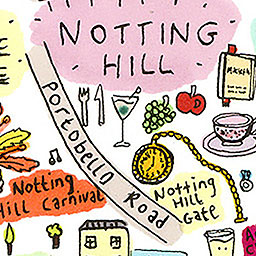 NOTTING
HILL
Portobello Road
Notting
Hill Carnival
Notting
Hill
Gate